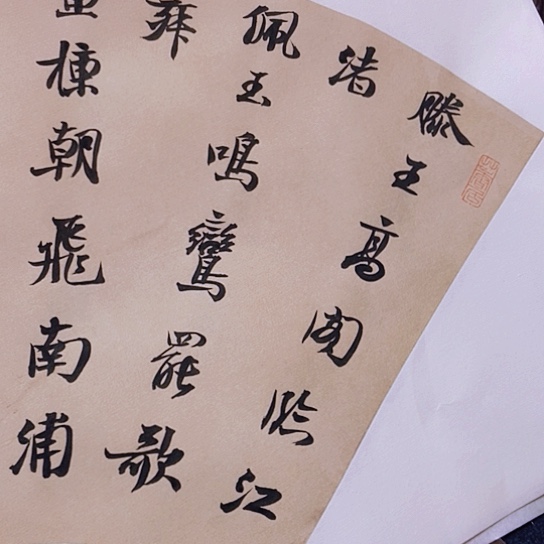 滕王高閣臨江
渚
佩玉鳴鸞罷歌
舞
畫棟朝飛南浦